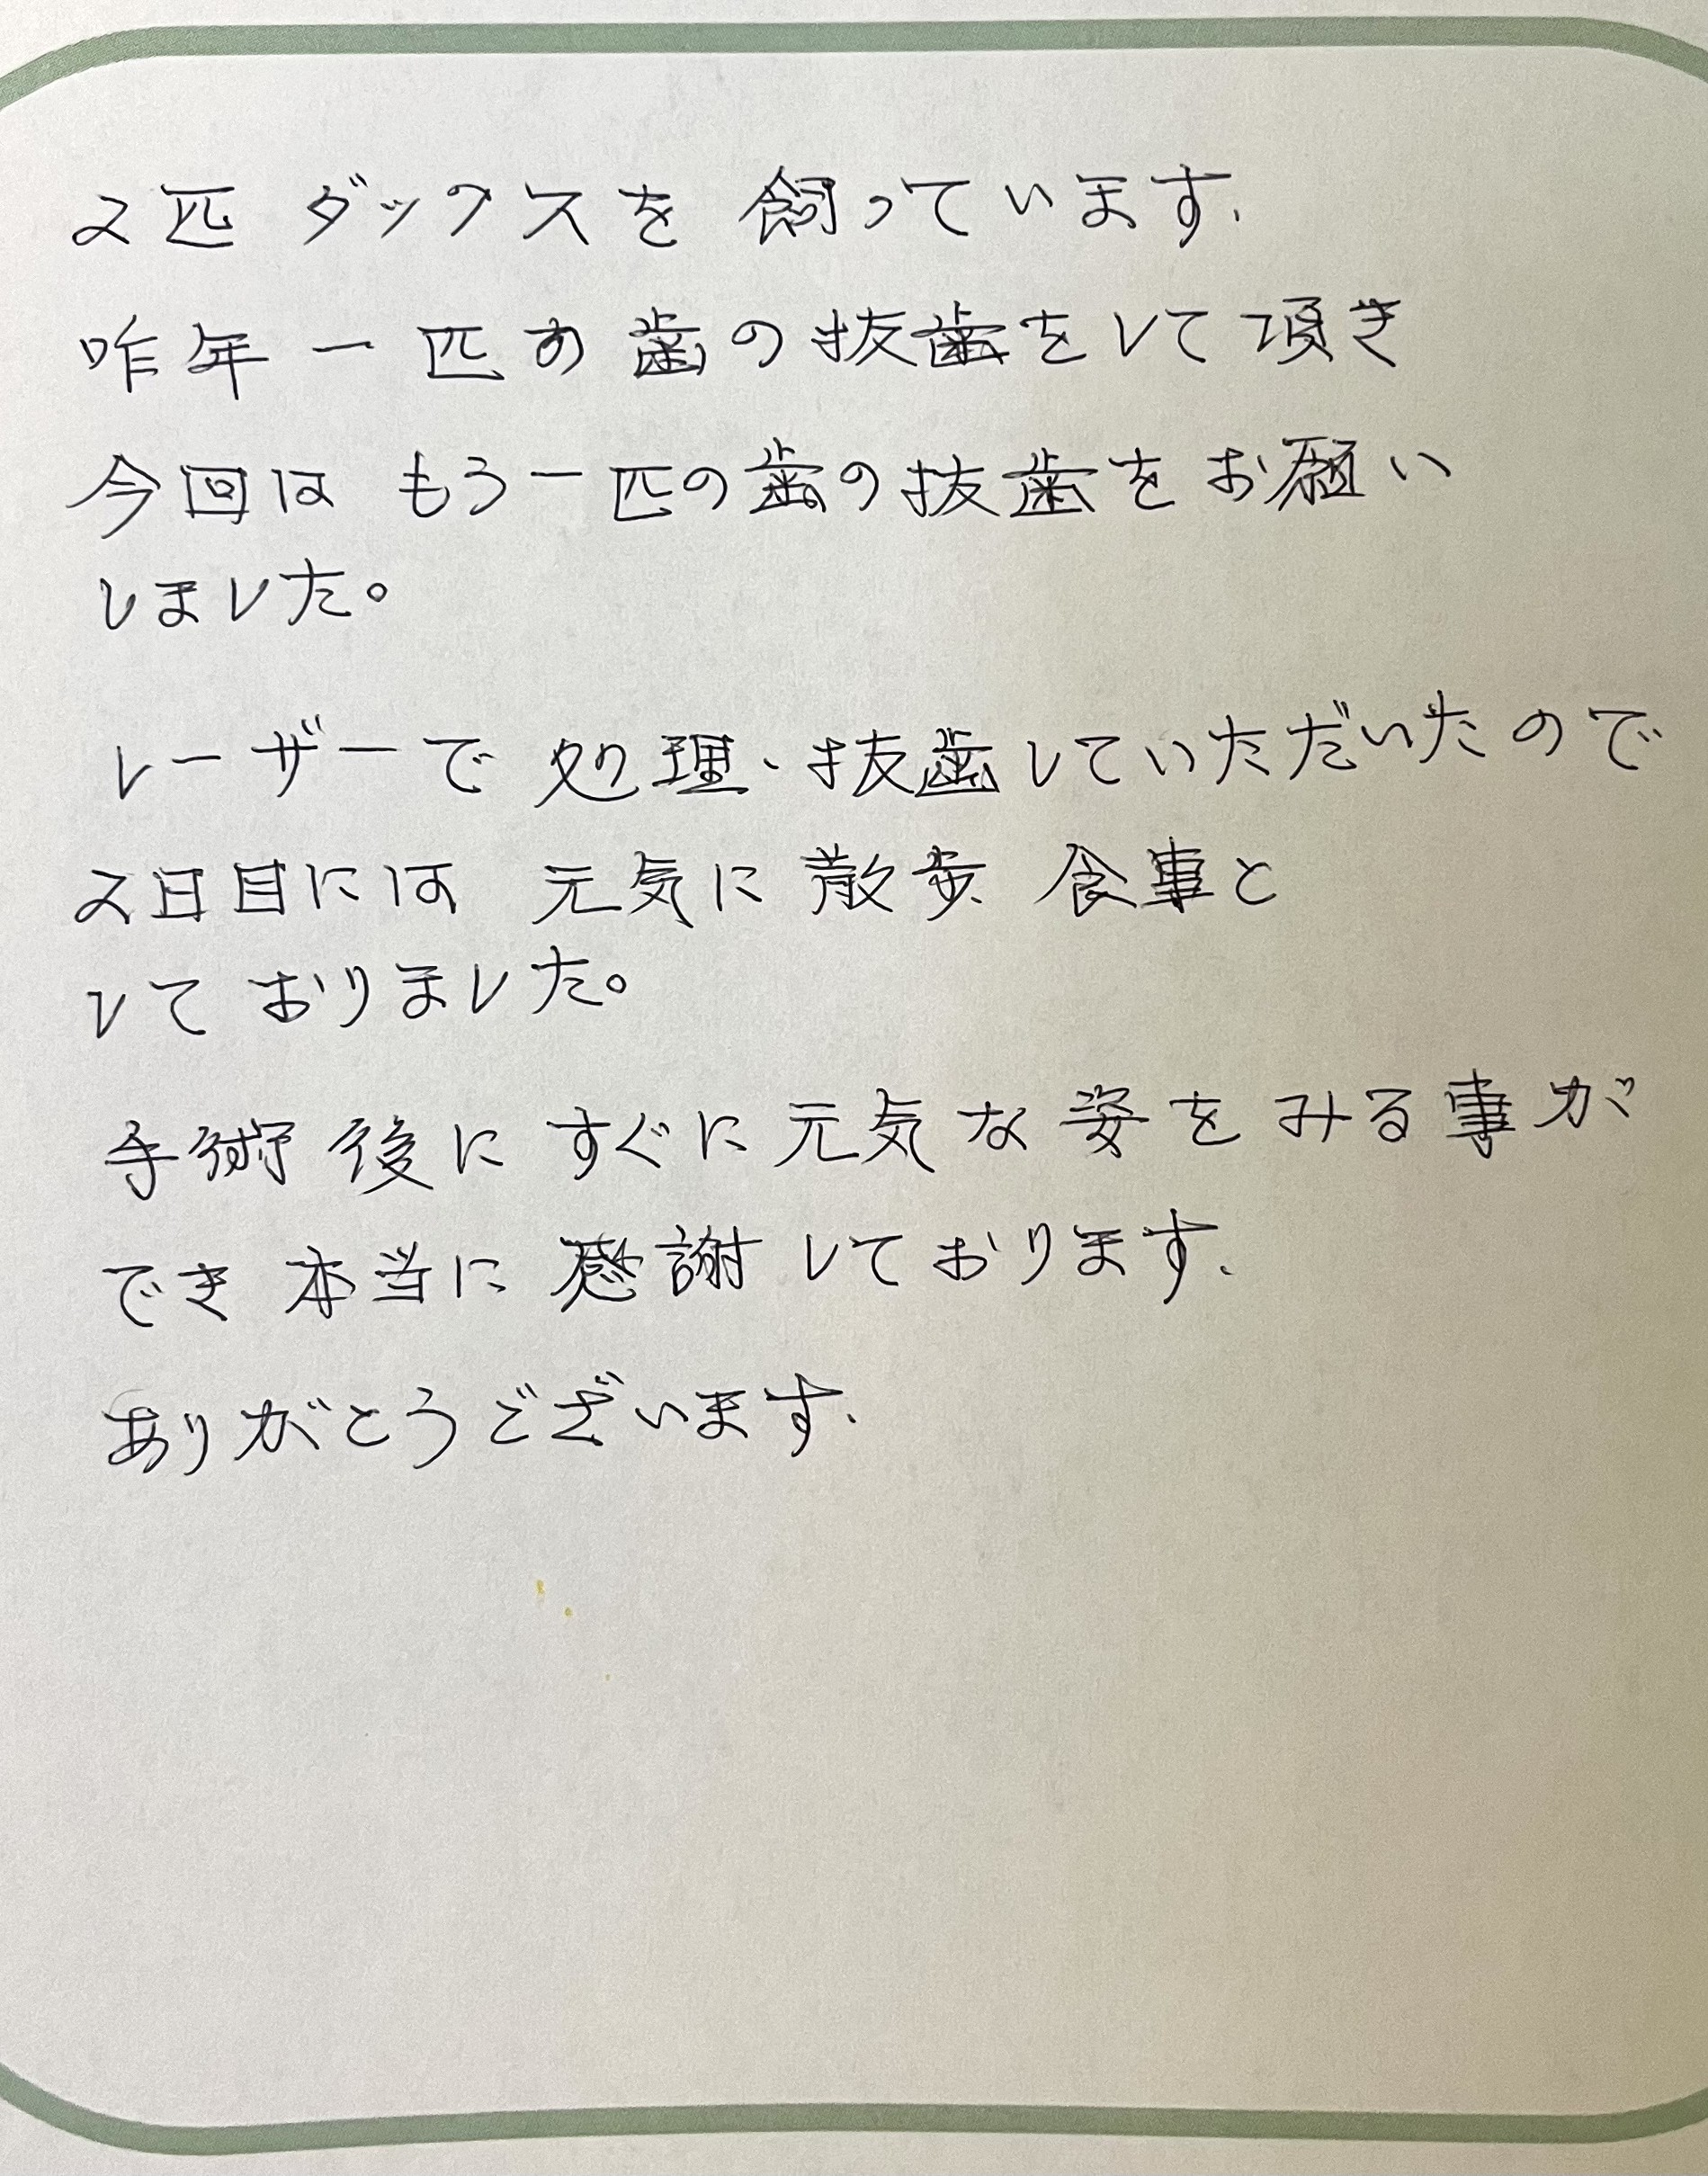 2匹 ダックスを 飼っています.
昨年 一匹の歯の抜歯をして頂き
今回は もう一匹の歯の抜歯をお願い
しました。
レーザーで 処理、抜歯していただいたので
2日目には 元気に散歩、食事と
しておりました。
手術後に すぐに元気な姿をみる事が
でき 本当に 感謝しております.
ありがとうございます.